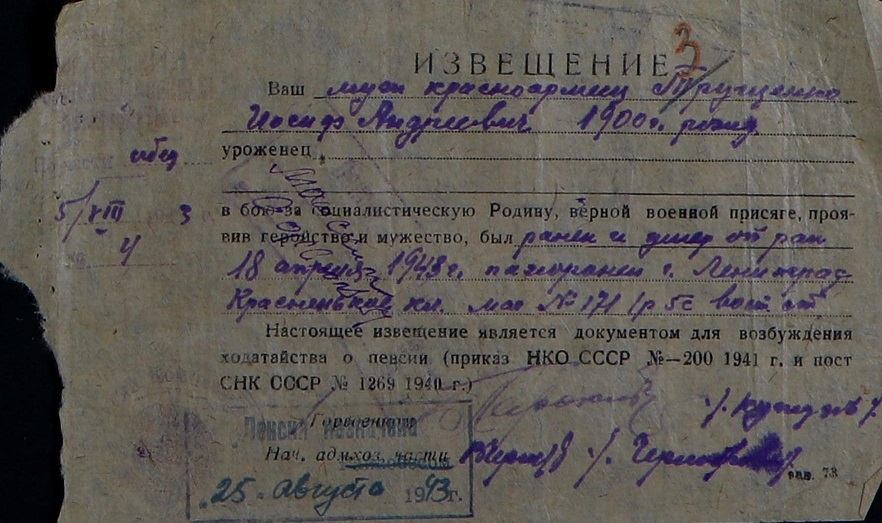 ИЗВЕЩЕНИЕ
3
Ваш муж красноармеец Трущенко
Иосиф Андреевич 1900 г. рожд
уроженец
5/VIII 3
4
в бою за социалистическую Родину, верной военной присяге, проя-
вив геройство и мужество, был ранен и умер от ран
18 апреля 1943 г. похоронен г. Ленинград
Красненькое кл. мог № 171 1р 5с вост ст.
Настоящее извещение является документом для возбуждения
ходатайства о пенсии (приказ НКО СССР №—200 1941 г. и пост
СНК СССР № 1269 1940 г.)
Горвоенком
Пенсия назначена
Нач. адмхоз. части
25 августа 1943 г.